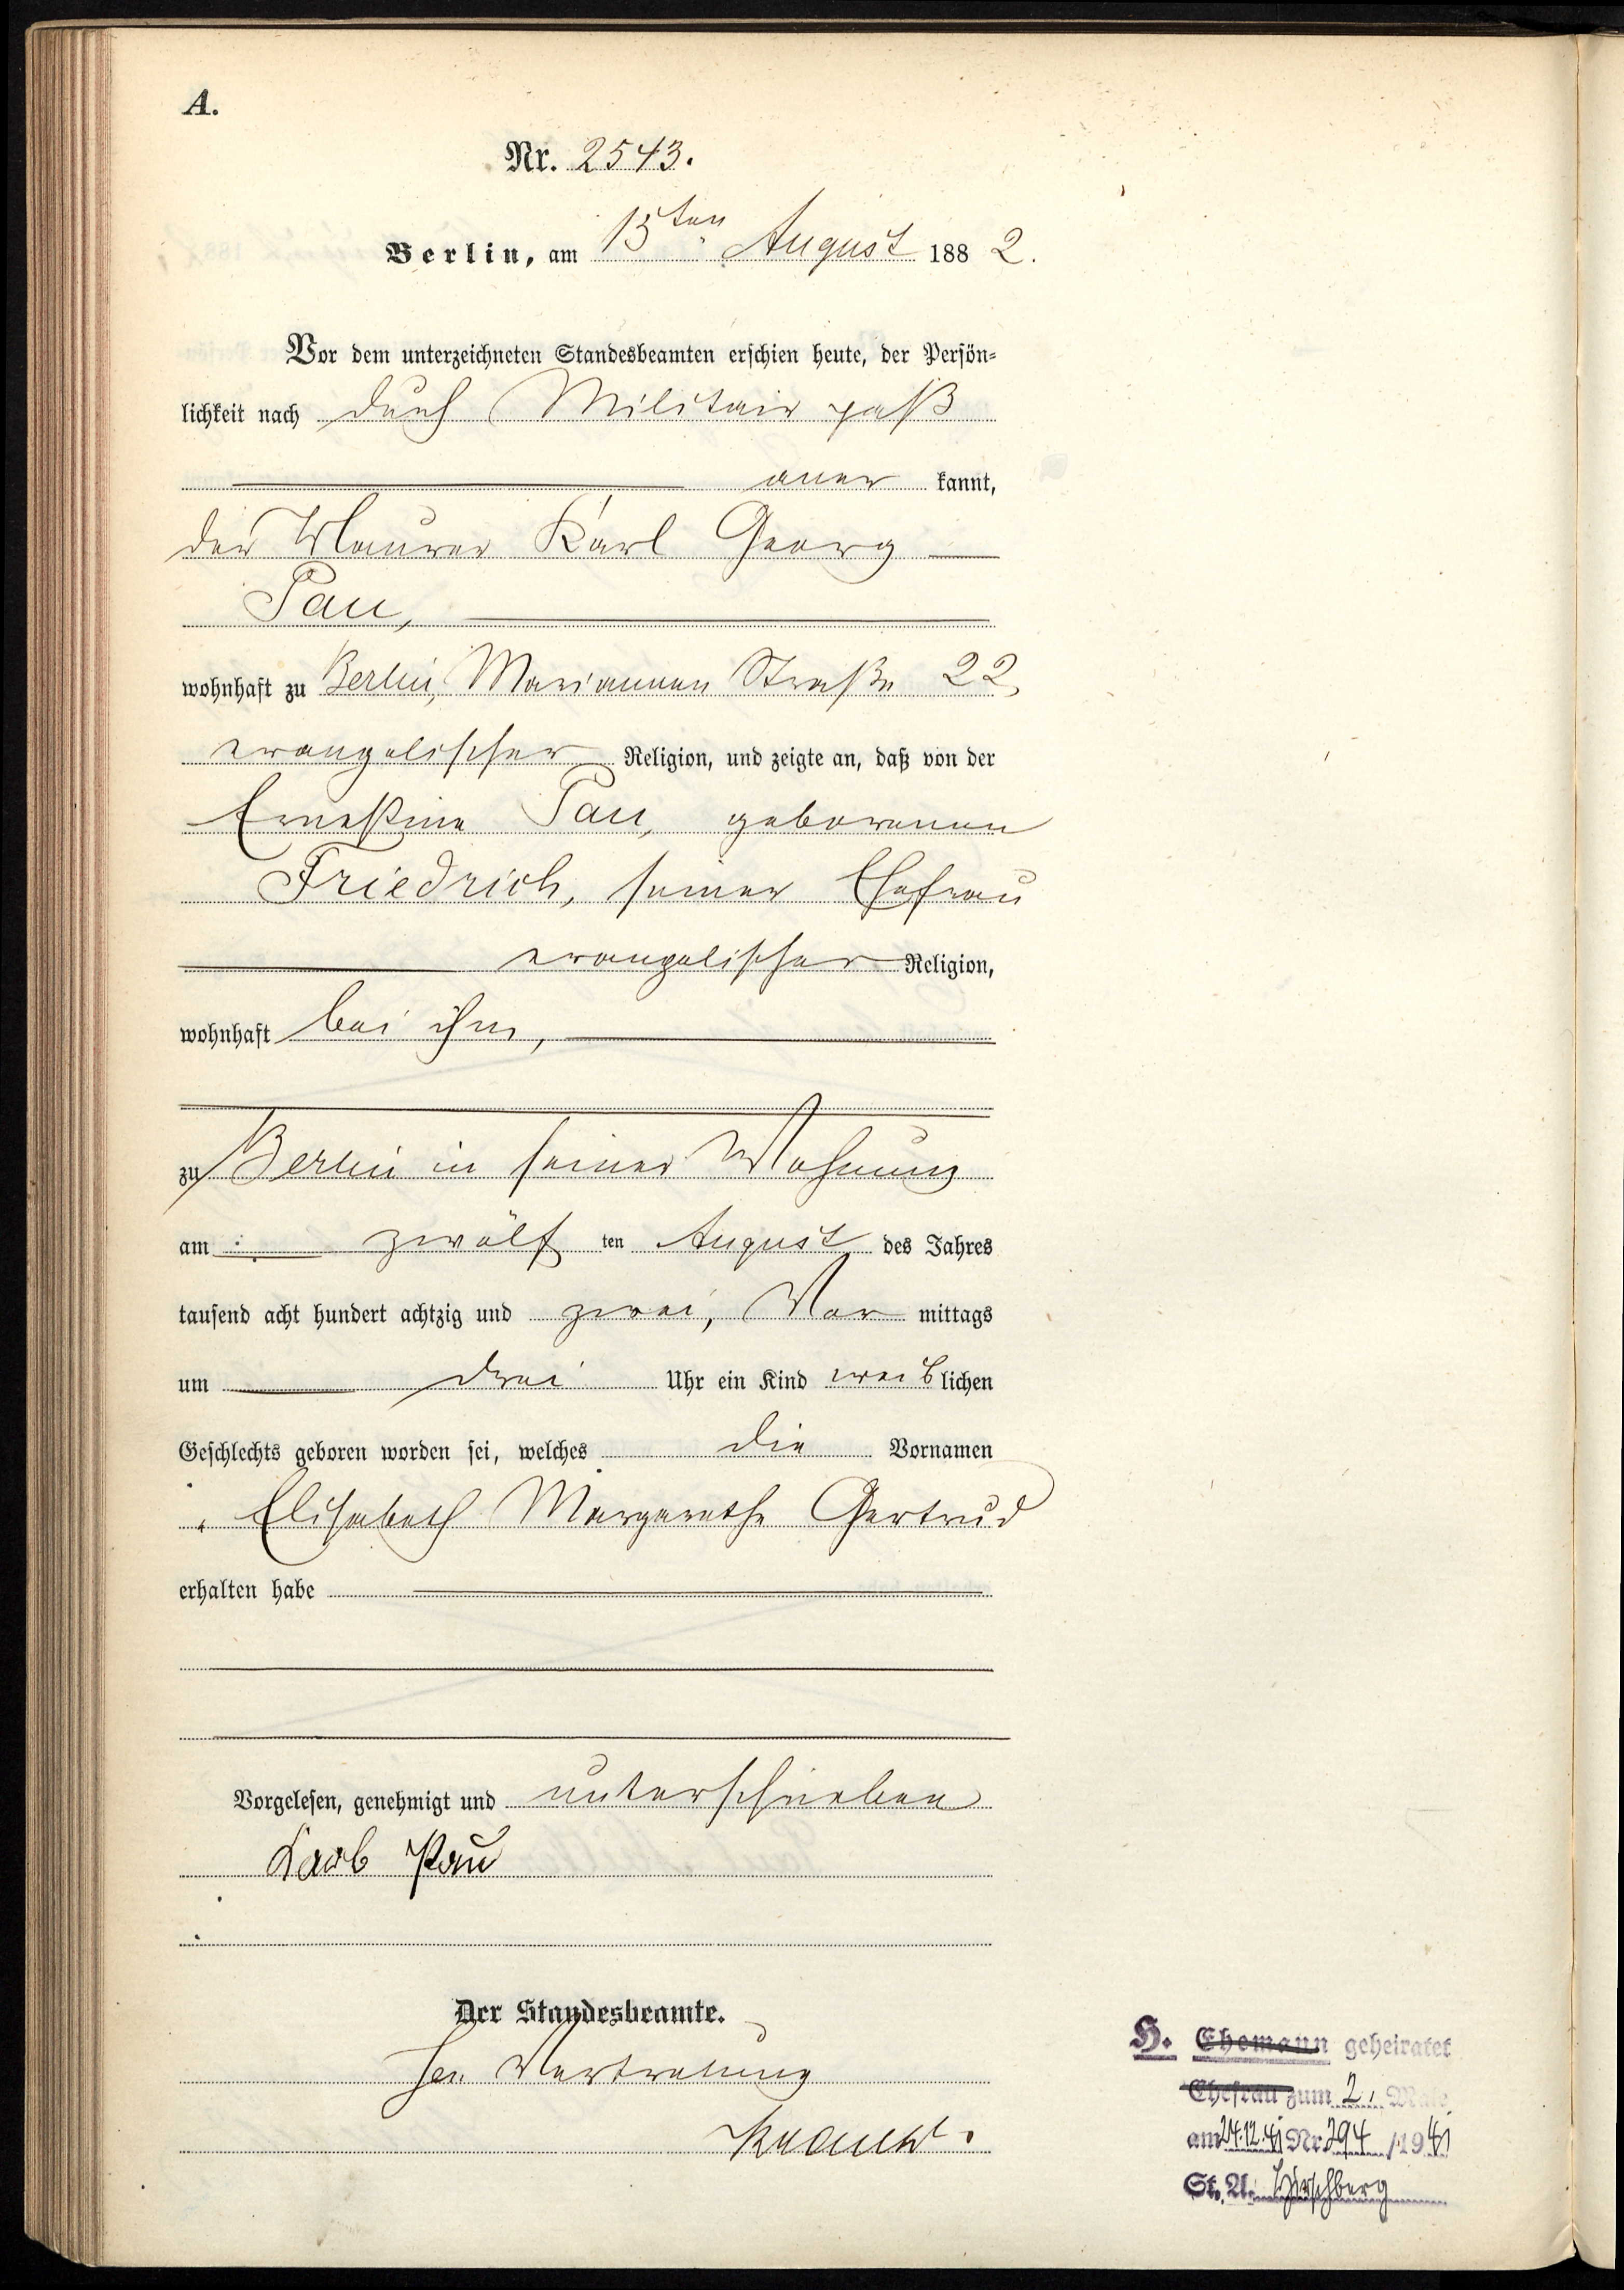 A.
Nr. 2543.
Berlin, am 15ten August 1882.
Vor dem unterzeichneten Standesbeamten erschien heute, der Persön-
lichkeit nach durch Militair paß
aner kannt,
der Maurer Karl Georg
Pau,
wohnhaft zu Berlin, Mariannen Straße 22,
evangelischer Religion, und zeigte an, daß von der
Ernestine Pau, geborenen
Friedrich, seiner Ehefrau
evangelischer Religion,
wohnhaft bei ihm,
zu Berlin in seiner Wohnung
am zwölf ten August des Jahres
tausend acht hundert achtzig und zwei, Vor mittags
um drei Uhr ein Kind weiblichen
Geschlechts geboren worden sei, welches die Vornamen
Elisabeth Margarethe Gertrud
erhalten habe
Vorgelesen, genehmigt und unterschrieben
Karl Pau
Der Standesbeamte.
In Vertretung
H. Ehemann geheiratet
Ehefrau zum 2. Male
am 24.12.41 Nr. 294 /1941
St. A. Hirschberg